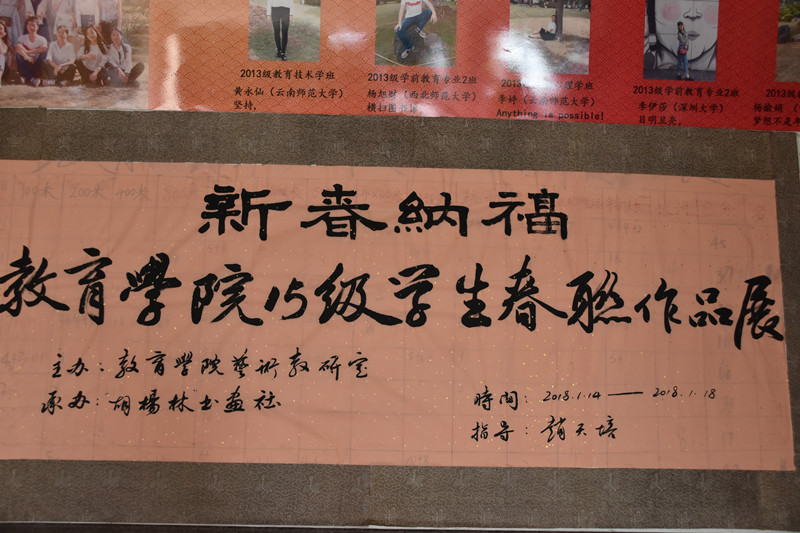 2013级教育技术学班
黄永仙（云南师范大学）
坚持，
2013级学前教育专业2班
杨旭财（西北师范大学）
横扫图书馆
2013级
李婷（云南师范大学）
Anything is possible!
2013级学前教育专业2班
李伊莎（深圳大学）
目明且亮，
2013级教
杨敏娟
梦想不是
100米 200米 400米
新春納福
教育學院15级学生春聯作品展
主办：教育學院藝術教研室
承办：胡楊林书画社
時間：2018.1.14——2018.1.18
指导：趙天培